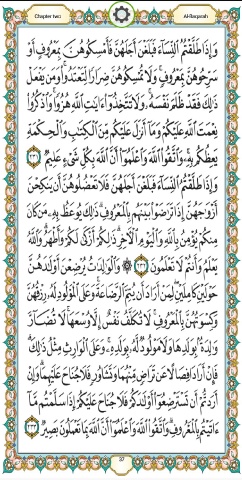 Chapter two
Al-Baqarah
وَإِذَا طَلَّقْتُمُ ٱلنِّسَآءَ فَبَلَغْنَ أَجَلَهُنَّ فَأَمْسِكُوهُنَّ بِمَعْرُوفٍ أَوْ
سَرِّحُوهُنَّ بِمَعْرُوفٍ وَلَا تُمْسِكُوهُنَّ ضِرَارًا لِّتَعْتَدُوا۟ وَمَن يَفْعَلْ
ذَٰلِكَ فَقَدْ ظَلَمَ نَفْسَهُۥ وَلَا تَتَّخِذُوٓا۟ ءَايَٰتِ ٱللَّهِ هُزُوًا وَٱذْكُرُوا۟
نِعْمَتَ ٱللَّهِ عَلَيْكُمْ وَمَآ أَنزَلَ عَلَيْكُم مِّنَ ٱلْكِتَٰبِ وَٱلْحِكْمَةِ
يَعِظُكُم بِهِۦ وَٱتَّقُوا۟ ٱللَّهَ وَٱعْلَمُوٓا۟ أَنَّ ٱللَّهَ بِكُلِّ شَىْءٍ عَلِيمٌ ٢٣١
وَإِذَا طَلَّقْتُمُ ٱلنِّسَآءَ فَبَلَغْنَ أَجَلَهُنَّ فَلَا تَعْضُلُوهُنَّ أَن يَنكِحْنَ
أَزْوَٰجَهُنَّ إِذَا تَرَٰضَوْا۟ بَيْنَهُم بِٱلْمَعْرُوفِ ذَٰلِكَ يُوعَظُ بِهِۦ مَن كَانَ
مِنكُمْ يُؤْمِنُ بِٱللَّهِ وَٱلْيَوْمِ ٱلْءَاخِرِ ذَٰلِكُمْ أَزْكَىٰ لَكُمْ وَأَطْهَرُ وَٱللَّهُ
يَعْلَمُ وَأَنتُمْ لَا تَعْلَمُونَ ٢٣٢ وَٱلْوَٰلِدَٰتُ يُرْضِعْنَ أَوْلَٰدَهُنَّ
حَوْلَيْنِ كَامِلَيْنِ لِمَنْ أَرَادَ أَن يُتِمَّ ٱلرَّضَاعَةَ وَعَلَى ٱلْمَوْلُودِ لَهُۥ رِزْقُهُنَّ
وَكِسْوَتُهُنَّ بِٱلْمَعْرُوفِ لَا تُكَلَّفُ نَفْسٌ إِلَّا وُسْعَهَا لَا تُضَآرَّ
وَٰلِدَةٌۢ بِوَلَدِهَا وَلَا مَوْلُودٌ لَّهُۥ بِوَلَدِهِۦ وَعَلَى ٱلْوَارِثِ مِثْلُ ذَٰلِكَ
فَإِنْ أَرَادَا فِصَالًا عَن تَرَاضٍ مِّنْهُمَا وَتَشَاوُرٍ فَلَا جُنَاحَ عَلَيْهِمَا وَإِنْ
أَرَدتُّمْ أَن تَسْتَرْضِعُوٓا۟ أَوْلَٰدَكُمْ فَلَا جُنَاحَ عَلَيْكُمْ إِذَا سَلَّمْتُم مَّآ
ءَاتَيْتُم بِٱلْمَعْرُوفِ وَٱتَّقُوا۟ ٱللَّهَ وَٱعْلَمُوٓا۟ أَنَّ ٱللَّهَ بِمَا تَعْمَلُونَ بَصِيرٌ ٢٣٣
37